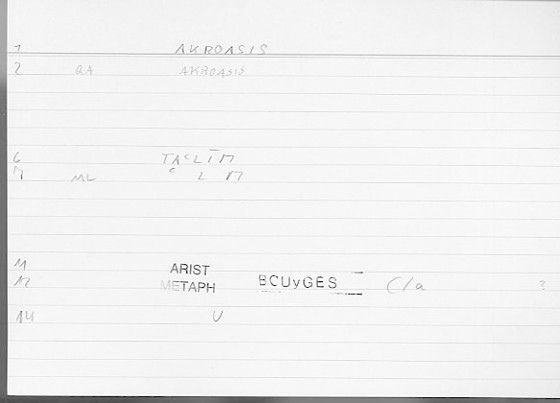 1 AKROASIS
2 QA AKROASIS
6 TAcLĪM
7 ML c L M
11 ARIST
12 METAPH BCUyGES C/a ?
14 U